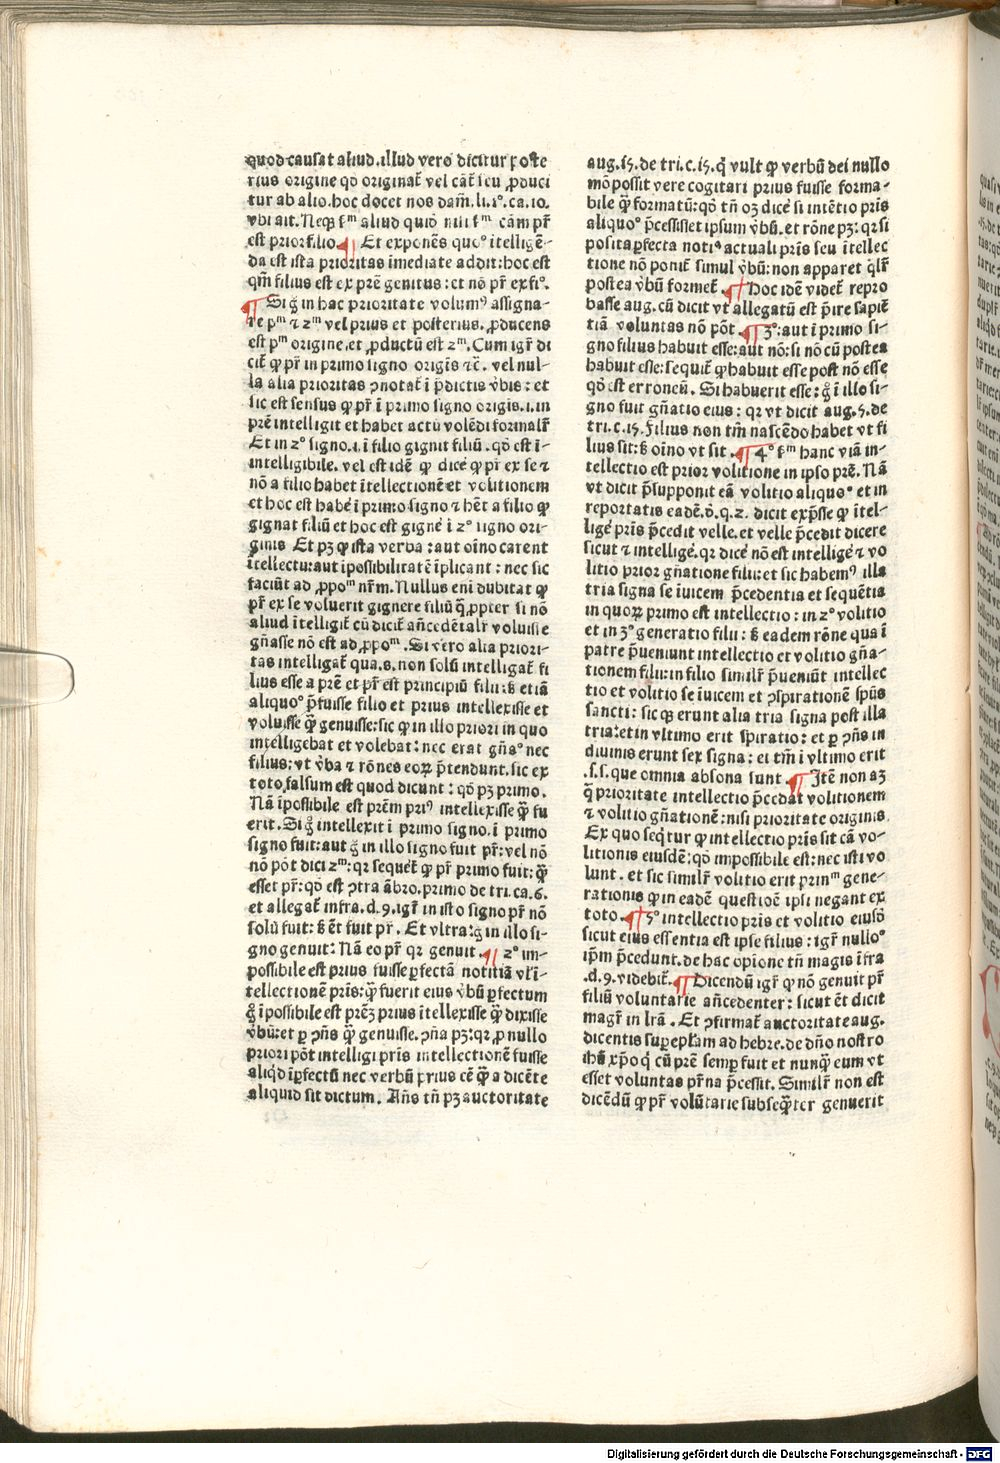 quod causat aliud. illud vero dicitur poste
rius origine qd originat᷑ vel cāt᷑ seu ꝓduci
tur ab alio. hoc docet nos dam̄. li. 1º. ca. 10.
vbi ait. Neqꝫ ẜᵐ aliud quid nisi ẜᵐ cām pr̄
est prior filio ¶ Et exponēs quoº ītelligē-
da est ista prioritas īmediate addit: hoc est
qm̄ filius est ex prē genitus: et nō pr̄ ex fiº.
¶ Si g̊ in hac prioritate volumꝰ assigna-
re pᵐ ⁊ 2ᵐ vel prius et posterius. ꝓducens
est pᵐ origine. et ꝓductū est 2ᵐ. Cum igr̄ di
cit᷑ ꝙ pr̄ in primo signo origīs ⁊c̄. vel nul-
la alia prioritas ꝯnotat᷑ ī p̄dictis v̄bis: et
sic est sensus ꝙ pr̄ ī primo signo origīs .i. in
prē intelligit et habet actū volēdi formalr̄
Et in 2º signo .i. ī filio gignit filiū. qd̄ est ī-
intelligibile. vel est idē ꝙ dicē ꝙ pr̄ ex se ⁊
nō a filio habet ītellectionē et volitionem
et hoc est habē ī primo signo ⁊ hēt a filio ꝙ
gignat filiū et hoc est gignē ī 2º signo ori-
ginis Et pꝫ ꝙ ista verba: aut oīno carent
ītellectu: aut īpossibilitatē īplicant: nec sic
faciūt ad ꝓpoᵐ nr̄m. Nullus enī dubitat ꝙ
pr̄ ex se voluerit gignere filiū q̄ ꝓpter si nō
aliud ītelligit᷑ cū dicit᷑ an̄cedētalr̄ voluisse
gn̄asse nō est ad ꝓpoᵐ. Si vero alia priori-
tas intelligat᷑ qua .s. non solū intelligat᷑ fi
lius esse a prē et pr̄ est principiū filii: ẜ etiā
aliquoº p̄fuisse filio et prius intellexisse et
voluisse q̄ genuisse: sic ꝙ in illo priori in quo
intelligebat et volebat: nec erat gn̄aº nec
filius: vt v̄ba ⁊ rōnes eoꝝ p̄tendunt. sic ex
toto falsum est quod dicunt: qd̄ pꝫ primo.
Nā īpossibile est prēm priꝰ intellexisse q̄ fu
erit. Si g̊ intellexit ī primo signo. ī primo
signo fuit: aut g̊ in illo signo fuit pr̄: vel nō
nō pōt dici 2ᵐ: qr sequet᷑ ꝙ pr̄ primo fuit: q̄
esset pr̄: qd̄ est ꝯtra ābro. primo de tri. ca. 6.
et allegat᷑ infra. d. 9. igr̄ in isto signo pr̄ nō
solū fuit: ẜ ēt fuit pr̄. Et vltra: g̊ in illo si-
gno genuit: Nā eo pr̄ qr genuit. ¶ 2º im-
possibile est prius fuisse ꝑfectā notitiā vl̄ ī-
tellectionē pris: q̄ fuerit eius v̄bū ꝑfectum
g̊ īpossibile est prēꝫ prius ītellexisse q̄ dixisse
v̄bū: et ꝑ ꝯn̄s q̄ genuisse. ꝯn̄a pꝫ: qr ꝓ nullo
priori pōt intelligi pris intellectionē fuisse
aliqd̄ īꝑfectū nec verbū prius eē q̄ a dicēte
aliquid sit dictum. An̄s tn̄ pꝫ auctoritate
aug. 15. de tri. c. 15. q̊ vult ꝙ verbū dei nullo
mō possit vere cogitari prius fuisse forma-
bile q̄ formatū: qd̄ tn̄ oꝫ dicē si intētio pris
aliquoº p̄cessisset ipsum v̄bū. et rōne pꝫ: qr si
posita ꝑfecta notiᵃ actuali pris seu ītellec
tione nō ponit᷑ simul v̄bū: non apparet qlr̄
postea v̄bū formet᷑. ¶ Hoc idē videt᷑ repro
basse aug. cū dicit vt allegatū est p̄ire sapiē
tiā voluntas nō pōt. ¶ 3º: aut ī primo si-
gno filius habuit esse: aut nō: si nō cū postea
habuit esse: sequit᷑ ꝙ habuit esse post nō esse
qd̄ est erroneū. Si habuerit esse: g̊ ī illo si-
gno fuit gn̄atio eius: qr vt dicit aug. 5. de
tri. c. 15. Filius non tm̄ nascēdo habet vt fi
lius sit: ẜ oīno vt sit. ¶ 4º ẜᵐ hanc viā in-
tellectio est prior volitione in ipso prē. Nā
vt dicit p̄supponit eā volitio aliquoº et in
reportatis eadē. d. q. 2. dicit exp̄sse ꝙ ītel-
ligē pris p̄cedit velle. et velle p̄cedit dicere
sicut ⁊ intelligē. qr dicē nō est intelligē ⁊ vo
litio prior gn̄atione filii: et sic habemꝰ illa
tria signa se īuicem p̄cedentia et sequētia
in quoꝝ primo est intellectio: in 2º volitio
et in 3º generatio filii: ẜ eadem rōne qua ī
patre p̄ueniunt intellectio et volitio gn̄a-
tionem filii: in filio similr̄ p̄ueniūt intellec
tio et volitio se īuicem et ꝯspirationē spūs
sancti: sic qꝫ erunt alia tria signa post illa
tria: et in vltimo erit spiratio: et ꝑ ꝯn̄s in
diuinis erunt sex signa: et tm̄ ī vltimo erit
.s. s. que omnia absona sunt. ¶ Itē non aꝫ
q̄ prioritate intellectio p̄cedat volitionem
⁊ volitio gn̄ationē: nisi prioritate originis
Ex quo seqt̄ur ꝙ intellectio pris sit cā vo-
litionis eiusdē: qd̄ impossibile est: nec isti vo
lunt. et sic similr̄ volitio erit prinᵐ gene-
rationis ꝙ in eadē questiōē ipsi negant ex
toto. ¶ 5º intellectio pris et volitio eiusd̄
sicut eius essentia est ipse filius: igr̄ nulloº
ip̄m p̄cedunt. de hac opiōne tn̄ magis īfra
.d. 9. videbit᷑. ¶ Dicendū igr̄ ꝙ nō genuit pr̄
filiū voluntarie an̄cedenter: sicut ēt dicit
magr̄ in lr̄a. Et ꝯfirmat᷑ auctoritate aug.
dicentis suꝑ epl̄am ad hebre. de dn̄o nostro
ihū xp̄o ꝙ cū prē semꝑ fuit et nunq̄ eum vt
esset voluntas pr̄na p̄cessit. Similr̄ non est
dicēdū ꝙ pr̄ volūtarie subseq̄ter genuerit
Digitalisierung gefördert durch die Deutsche Forschungsgemeinschaft - DFG